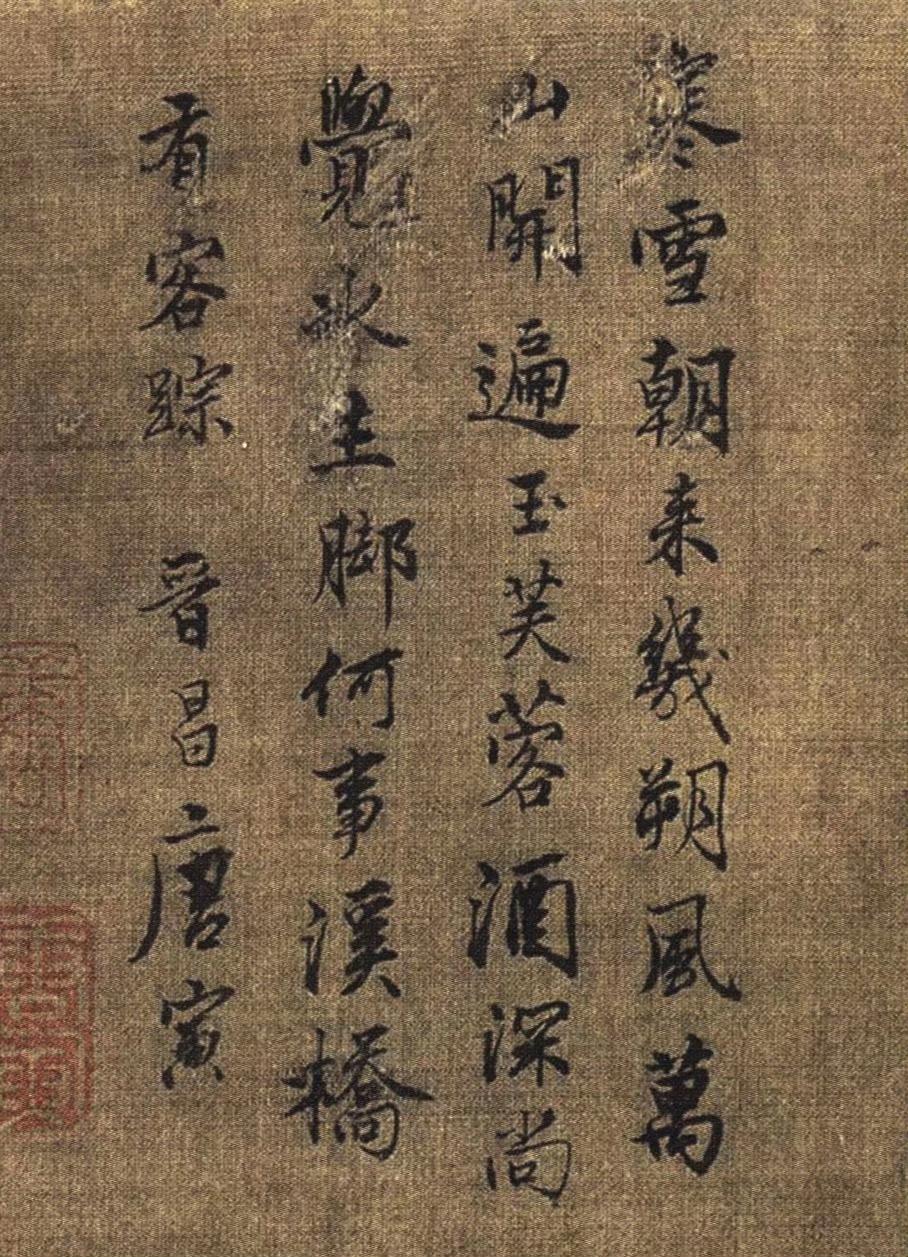 寒雪朝来幾朔風萬
山開遍玉芙蓉酒深尚
覺冰生脚何事溪橋
有客踪 晉昌唐寅